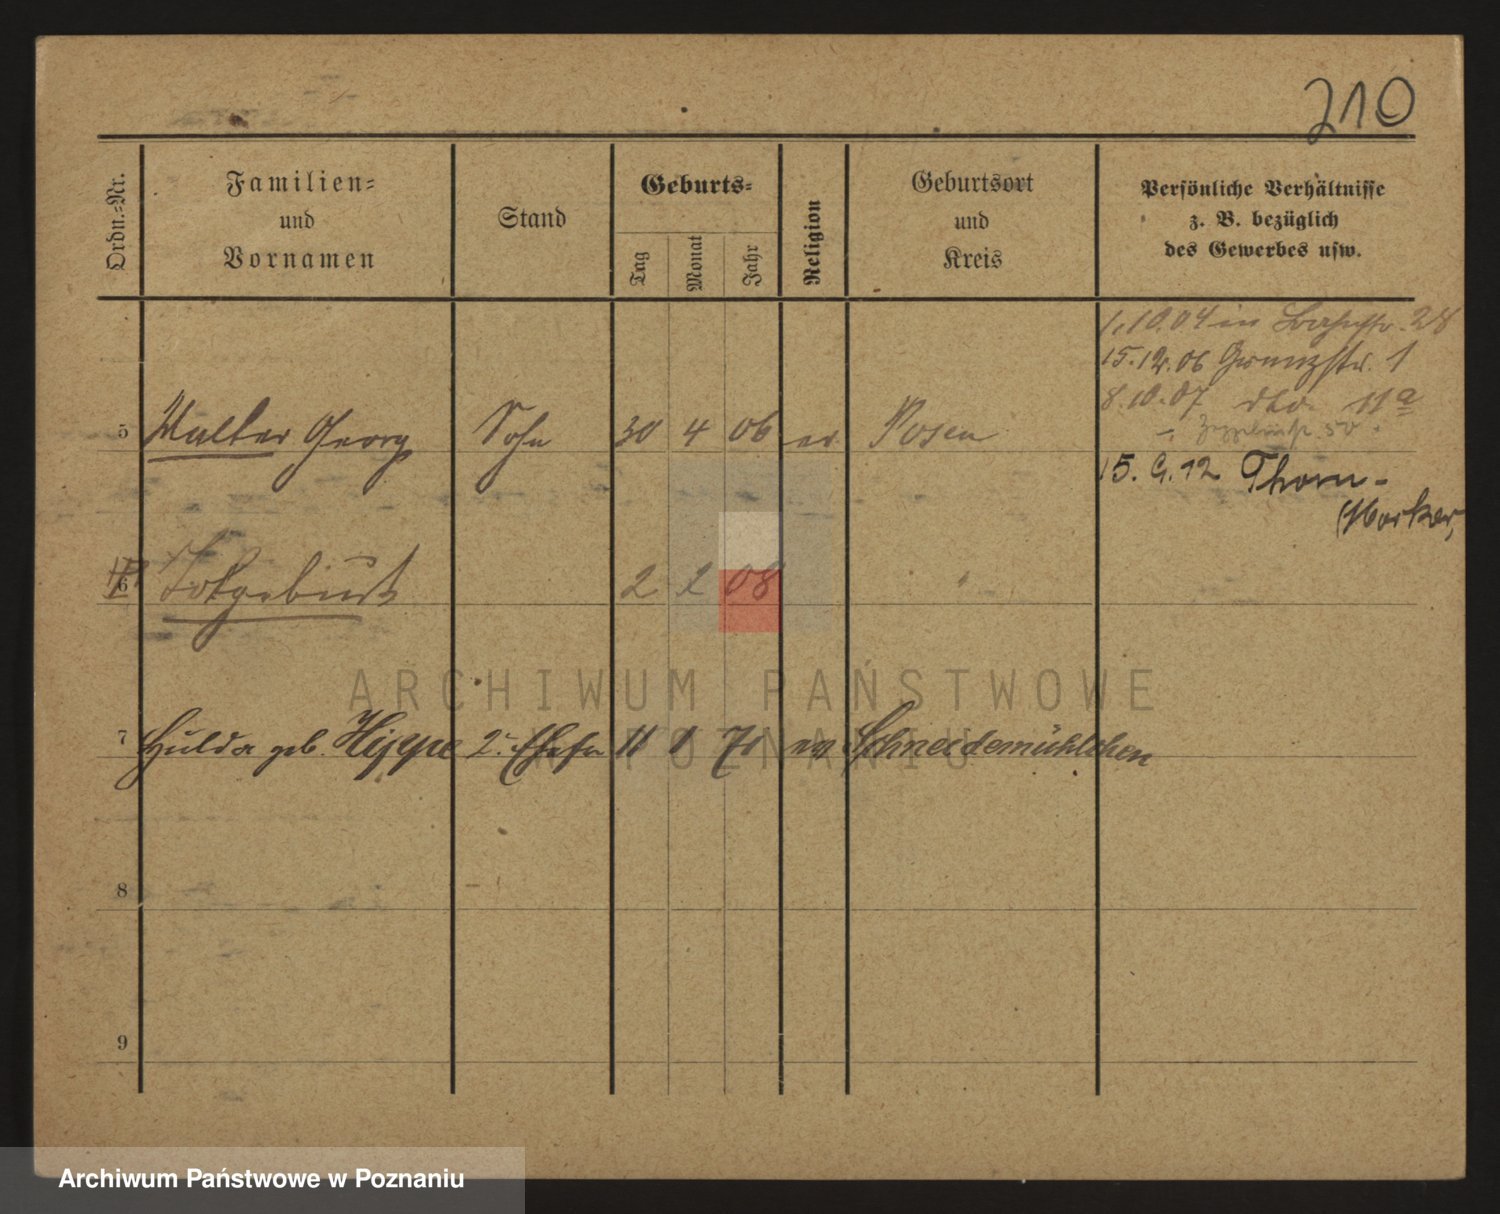 210
Ordn.-Nr.
Familien-
und
Vornamen
Stand
Geburts-
Tag
Monat
Jahr
Religion
Geburtsort
und
Kreis
Persönliche Verhältnisse
z. B. bezüglich
des Gewerbes usw.
1.10.04 in 28
15.12.06 Grenzstr. 1
8.10.07 dto. 11a
5 Walter Georg Sohn 30 4 06 ev. Posen
15. 9. 12 Thorn-
(Mocker,
6 Totgeburt 2 2 08
ARCHIWUM PAŃSTWOWE
W POZNANIU
7 Hulda geb. Hippe 2. Ehefr 11 1 71 ev Schneidemühlchen
8
9
Archiwum Państwowe w Poznaniu